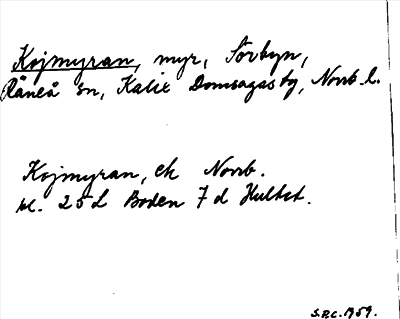 Kojmyran, myr, Sörbyn,
Råneå sn, Kalix Domsagas tg, Norrb. l.
Kojmyran, ek Norrb.
bl. 25 L Boden 7 d Hultet.
S.P.C. 1959.